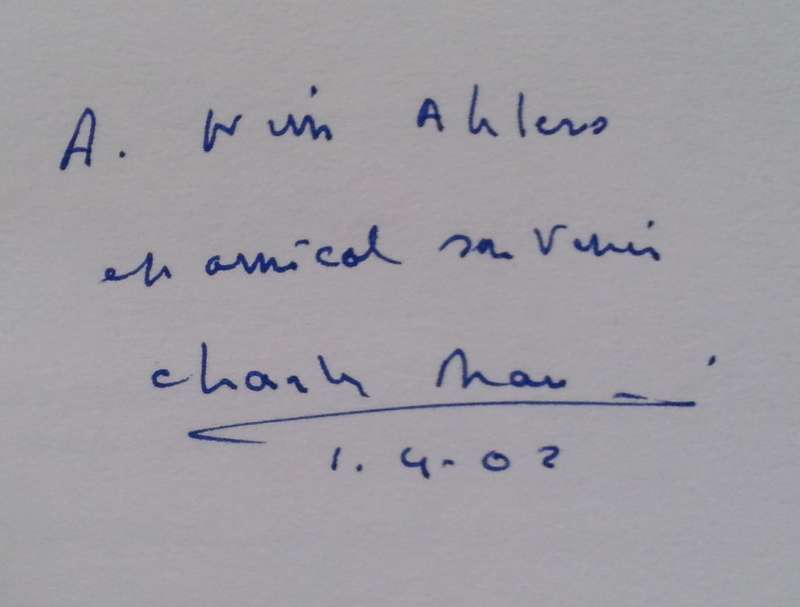 A. Wim Ahlers
en amical souvenir
Charles
1.4-02